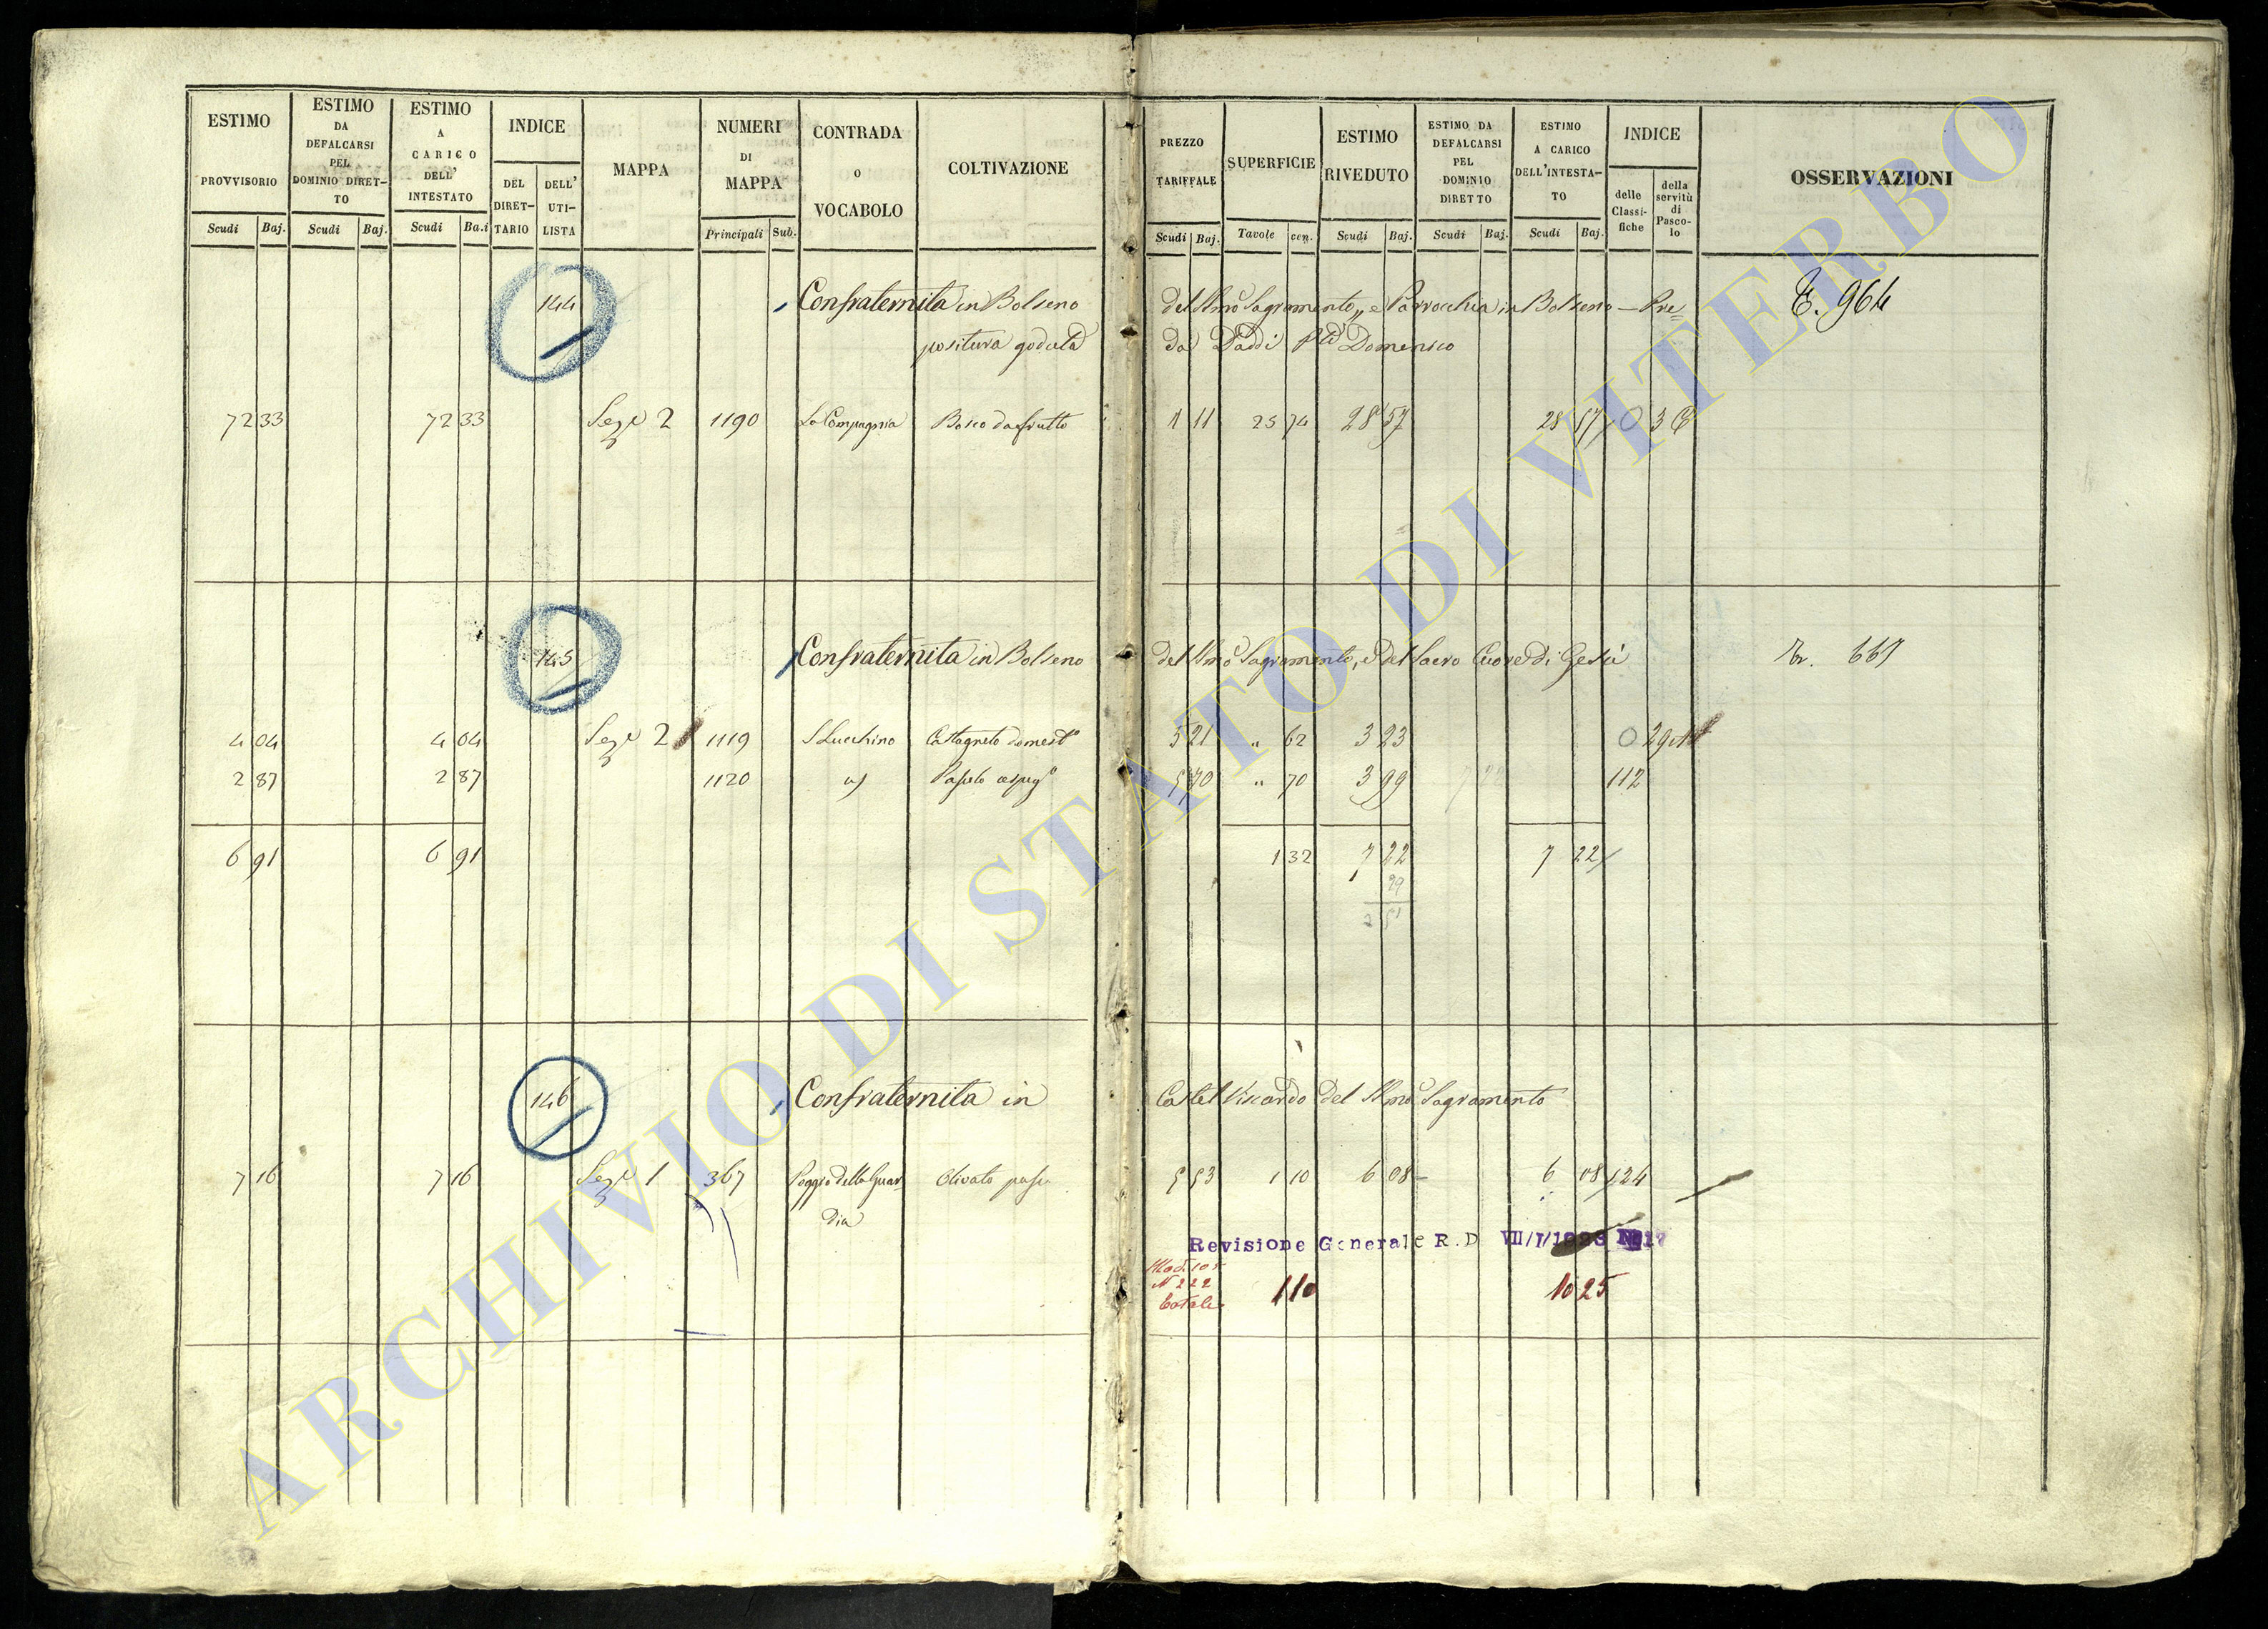 ESTIMO PROVVISORIO Scudi Baj.
ESTIMO DA DEFALCARSI PEL DOMINIO DIRETTO Scudi Baj.
ESTIMO A CARICO DELL' INTESTATO Scudi Ba.i
INDICE DEL DIRETTARIO DELL' UTILISTA
MAPPA
NUMERI DI MAPPA Principali Sub.
CONTRADA O VOCABOLO
COLTIVAZIONE
PREZZO TARIFFALE Scudi Baj.
SUPERFICIE Tavole cen.
ESTIMO RIVEDUTO Scudi Baj.
ESTIMO DA DEFALCARSI PEL DOMINIO DIRETTO Scudi Baj.
ESTIMO A CARICO DELL'INTESTATO Scudi Baj.
INDICE delle Classifiche della servitù di Pascolo
OSSERVAZIONI
144 Confraternita in Bolseno del Smo Sagramento, e Parrocchia in Bolseno – Pre= 964
positura goduta da Daddi Domenico
72 33 72 33 Seze 2 1190 La Compagnia Bosco da frutto 1 11 25 74 28 57 28 57 0 3
145 Confraternita in Bolseno del Smo Sagramento, e del Sacro Cuore di Gesù 667
4 04 4 04 Seze 2 1119 S Lucchino Castagneto domesto 5 21 " 62 3 23 0
2 87 2 87 1120 Pascolo cespugo 5 70 " 70 3 99 112
6 91 6 91 1 32 7 22 7 22
29
146 Confraternita in Castel Viscardo del SSmo Sagramento
7 16 7 16 Seze 1 367 Poggio della Guar- Olivato pasc 5 53 1 10 6 08 6 08 124
dia
Revisione Generale R.D. VII/I/1923 N 17
Mod. 105
N 222
Totale 1 10 10 25
ARCHIVIO DI STATO DI VITERBO